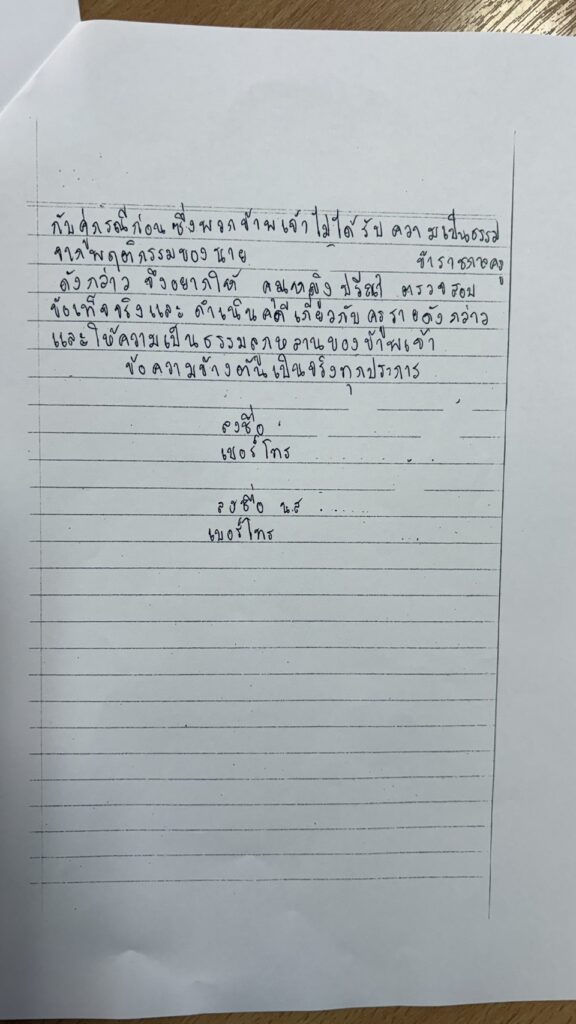 กับคู่กรณีก่อน ซึ่งพวกข้าพเจ้าไม่ได้รับความเป็นธรรม
จากพฤติกรรมของนาย ข้าราชการครู
ดังกล่าว จึงอยากให้ คุณหญิง ปวีณา ตรวจสอบ
ข้อเท็จจริงและ ดำเนินคดี เกี่ยวกับ ครูรายดังกล่าว
และให้ความเป็นธรรมลูกหลานของข้าพเจ้า
ข้อความข้างต้นเป็นจริงทุกประการ
ลงชื่อ
เบอร์โทร
ลงชื่อ นส
เบอร์โทร